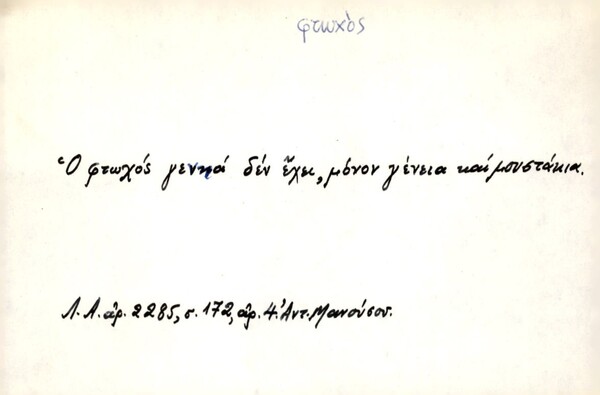 φτωχὸς
Ὁ φτωχός γεννιά δέν ἔχει, μόνον γένεια καί μουστάκια.
Λ.Α. ἀρ. 2285, σ. 172, ἀρ. 4. Ἀντ. Μανούσου.